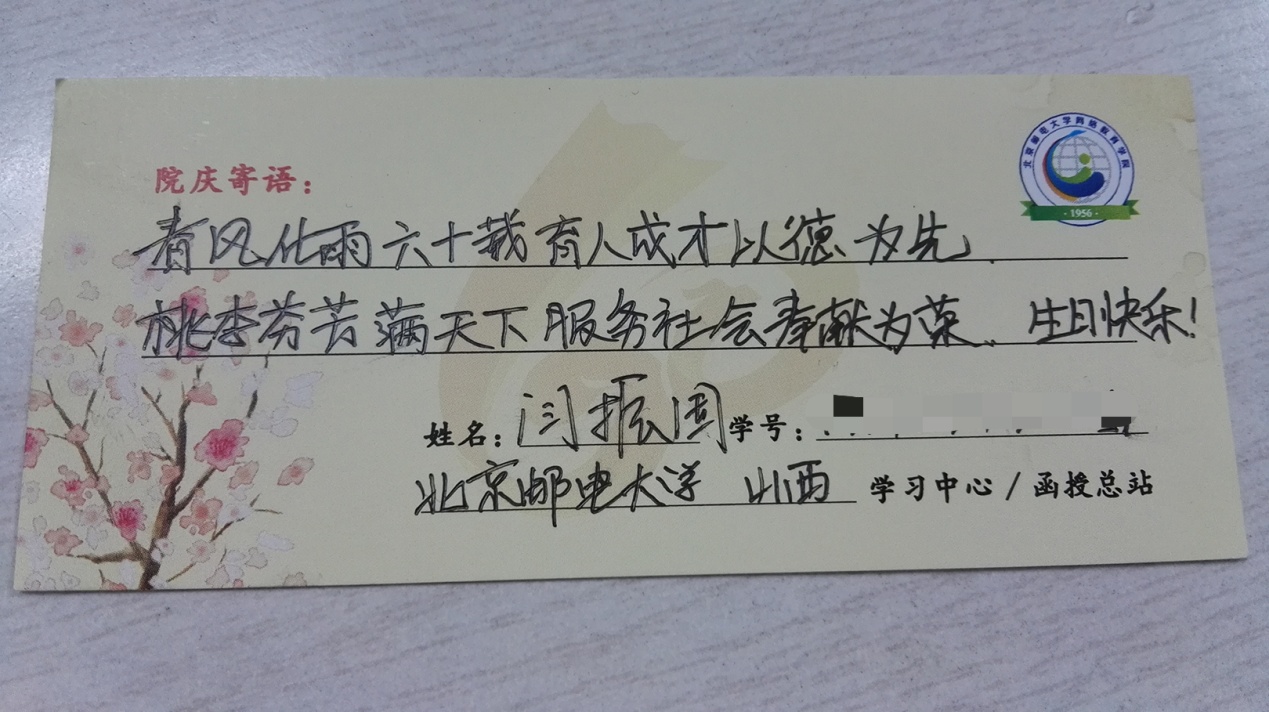 北京邮电大学网络教育学院
· 1956 ·
院庆寄语：
春风化雨六十载育人成才以德为先.
桃李芬芳满天下服务社会奉献为荣、生日快乐！
姓名：闫振国 学号：
北京邮电大学 山西 学习中心 / 函授总站